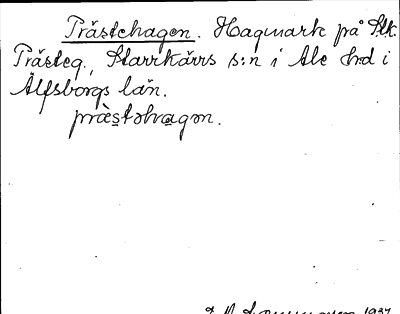 Prästehagen. Hagmark på Stk.
Prästeg., Starrkärrs s:n i Ale hd i
Älfsborgs län.
præstəhvagən.
1937